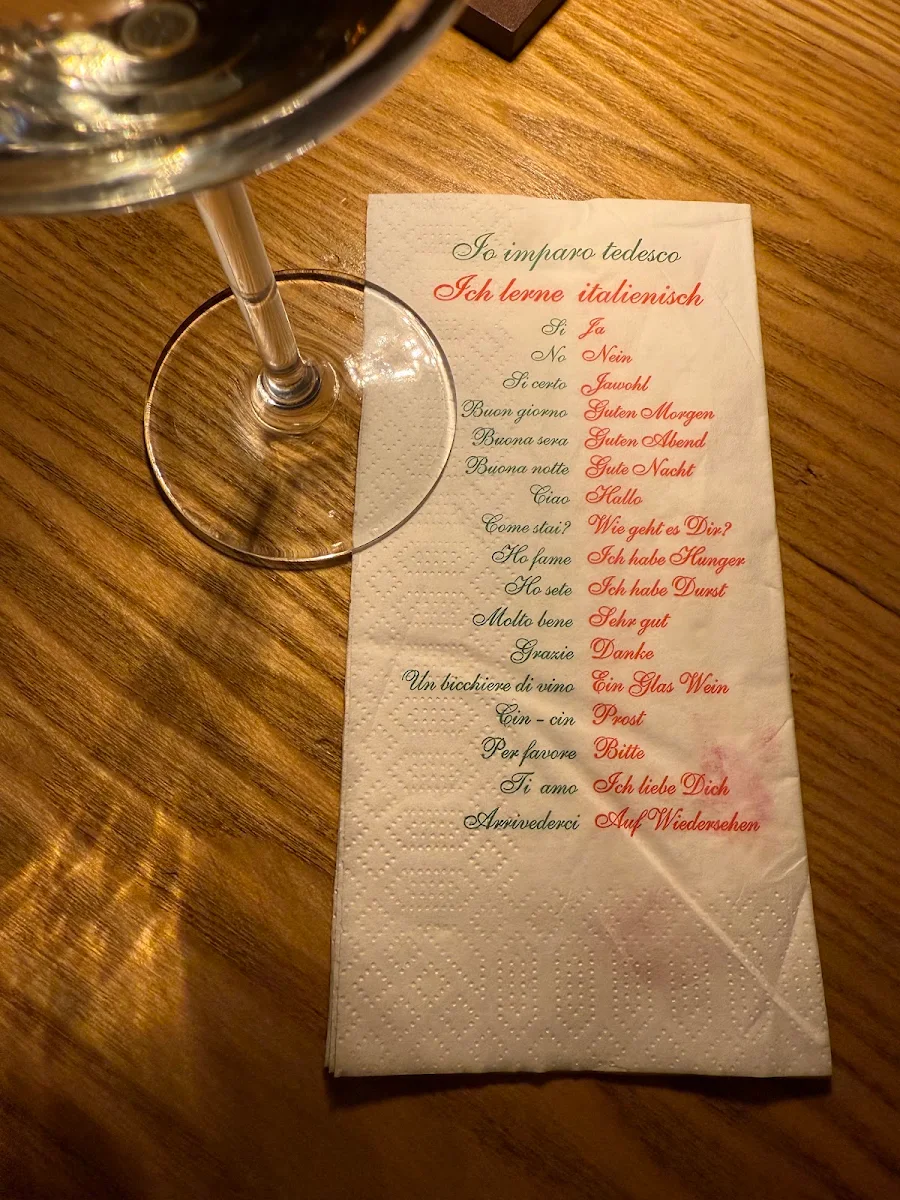 Io imparo tedesco
Ich lerne italienisch
Si Ja
No Nein
Si certo Jawohl
Buon giorno Guten Morgen
Buona sera Guten Abend
Buona notte Gute Nacht
Ciao Hallo
Come stai? Wie geht es Dir?
Ho fame Ich habe Hunger
Ho sete Ich habe Durst
Molto bene Sehr gut
Grazie Danke
Un bicchiere di vino Ein Glas Wein
Cin - cin Prost
Per favore Bitte
Ti amo Ich liebe Dich
Arrivederci Auf Wiedersehen